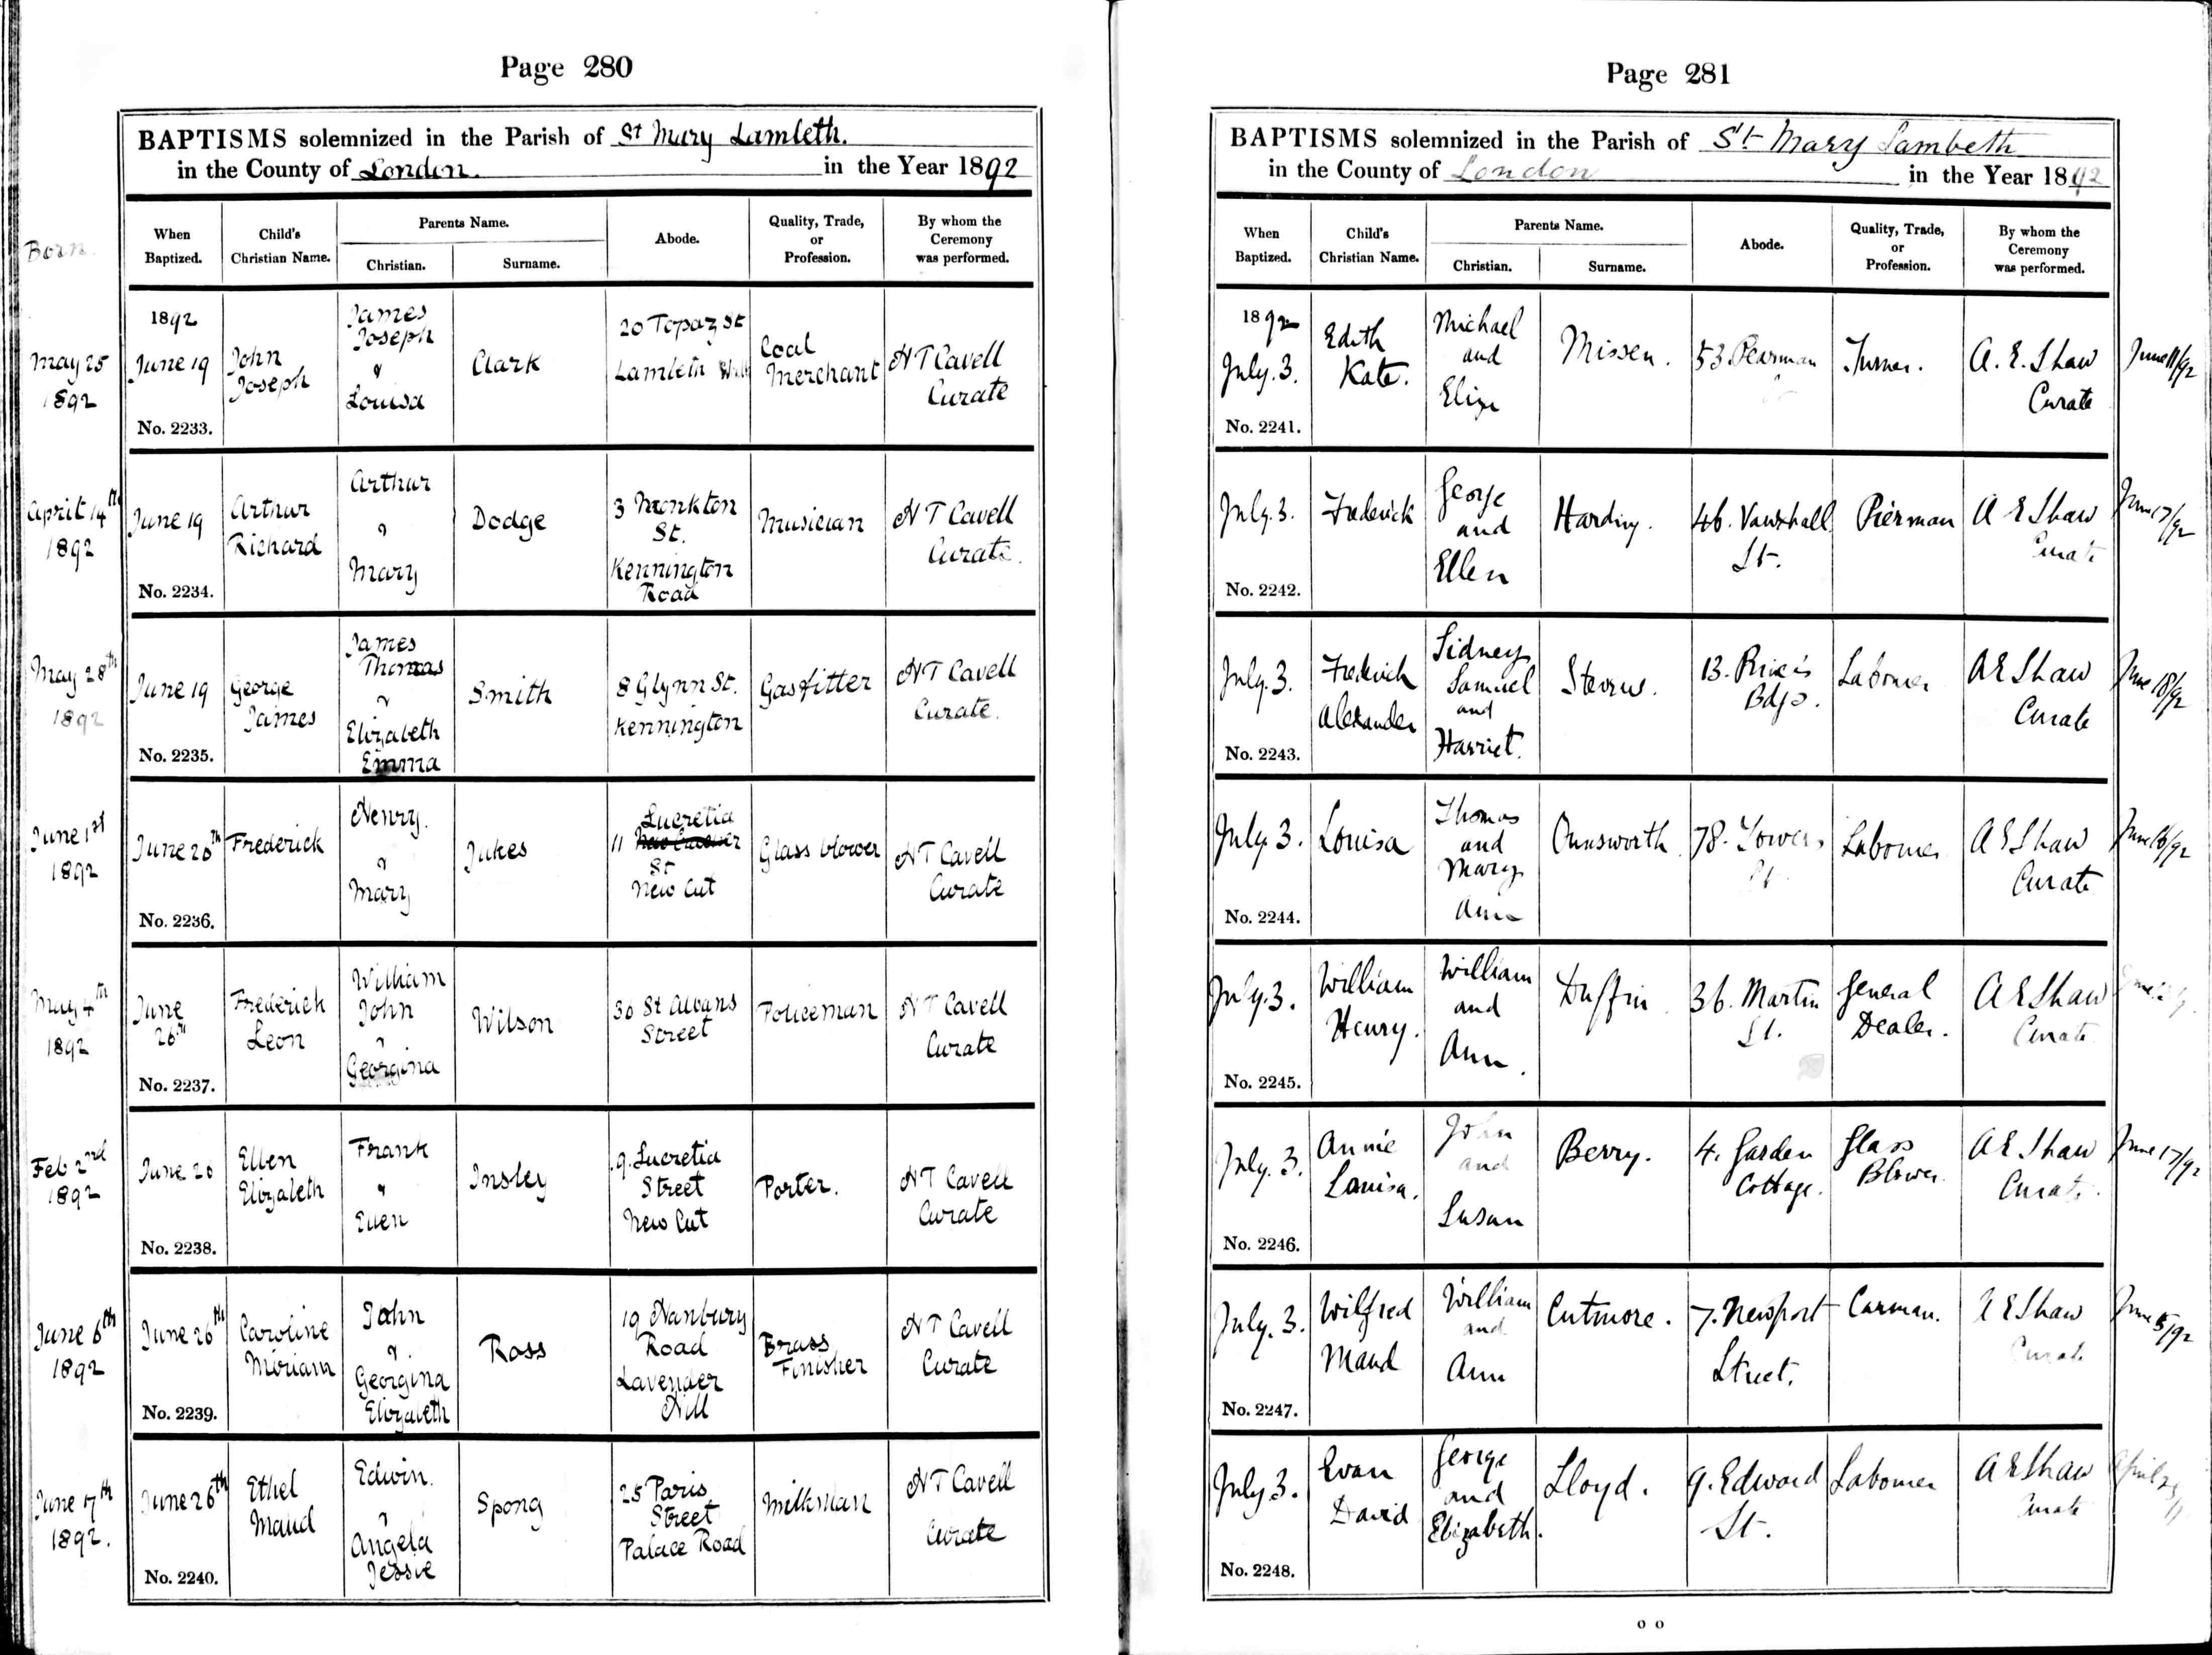 Page 280
BAPTISMS solemnized in the Parish of St Mary Lambeth.
in the County of London. in the Year 1892
Born.
When Baptized. Child's Christian Name. Parents Name. Christian. Surname. Abode. Quality, Trade, or Profession. By whom the Ceremony was performed.
May 25 1892
1892 June 19
No. 2233.
John Joseph
James Joseph & Louisa
Clark
20 Topaz St Lambeth
Coal Merchant
H T Cavell Curate
April 14th 1892
June 19
No. 2234.
Arthur Richard
Arthur & Mary
Dodge
3 Monkton St. Kennington Road
Musician
H T Cavell Curate.
May 28th 1892
June 19
No. 2235.
George James
James Thomas & Elizabeth Emma
Smith
8 Glynn St. Kennington
Gasfitter
H T Cavell Curate.
June 1st 1892
June 26th
No. 2236.
Frederick
Henry. & Mary
Jukes
11 Lucretia St New Cut
Glass blower
H T Cavell Curate
May 4th 1892
June 26th
No. 2237.
Frederick Leon
William John & Georgina
Wilson
36 St Albans Street
Policeman
H T Cavell Curate
Feb 2nd 1892
June 26
No. 2238.
Ellen Elizabeth
Frank & Ellen
Insley
9. Lucretia Street New Cut
Porter.
H T Cavell Curate
June 6th 1892
June 26th
No. 2239.
Caroline Miriam
John & Georgina Elizabeth
Ross
19 Hanbury Road Lavender Hill
Brass Finisher
H T Cavell Curate
June 17th 1892.
June 26th
No. 2240.
Ethel Maud
Edwin. & Angela Jessie
Spong
25 Paris Street Palace Road
Milkman
H T Cavell Curate
Page 281
BAPTISMS solemnized in the Parish of St Mary Lambeth
in the County of London in the Year 1892
When Baptized. Child's Christian Name. Parents Name. Christian. Surname. Abode. Quality, Trade, or Profession. By whom the Ceremony was performed.
1892 July. 3.
No. 2241.
Edith Kate.
Michael and Eliza
Missen.
53. Pearman St
Turner.
A. E. Shaw Curate
June 11/92
July. 3.
No. 2242.
Frederick
George and Ellen
Harding.
46. Vauxhall St.
Pierman
A E Shaw Curate
June 17/92
July. 3.
No. 2243.
Frederick Alexander
Sidney Samuel and Harriet.
Stevens.
13. Price's Bdgs.
Labourer
A E Shaw Curate
June 18/92
July. 3.
No. 2244.
Louisa
Thomas and Mary Ann
78. Tower St
Labourer
A E Shaw Curate
June 16/92
July. 3.
No. 2245.
William Henry.
William and Ann.
Duffin
36. Martin St.
General Dealer.
A E Shaw Curate
July. 3.
No. 2246.
Annie Louisa.
John and Susan
Berry.
4. Garden Cottage.
Glass Blower.
A E Shaw Curate.
June 17/92
July. 3.
No. 2247.
Wilfred Maud
William and Ann
Cutmore.
7. Newport Street.
Carman.
A E Shaw Curate
June 5/92
July 3.
No. 2248.
Evan David
George and Elizabeth.
Lloyd.
9. Edward St.
Labourer
A E Shaw Curate
April
o o